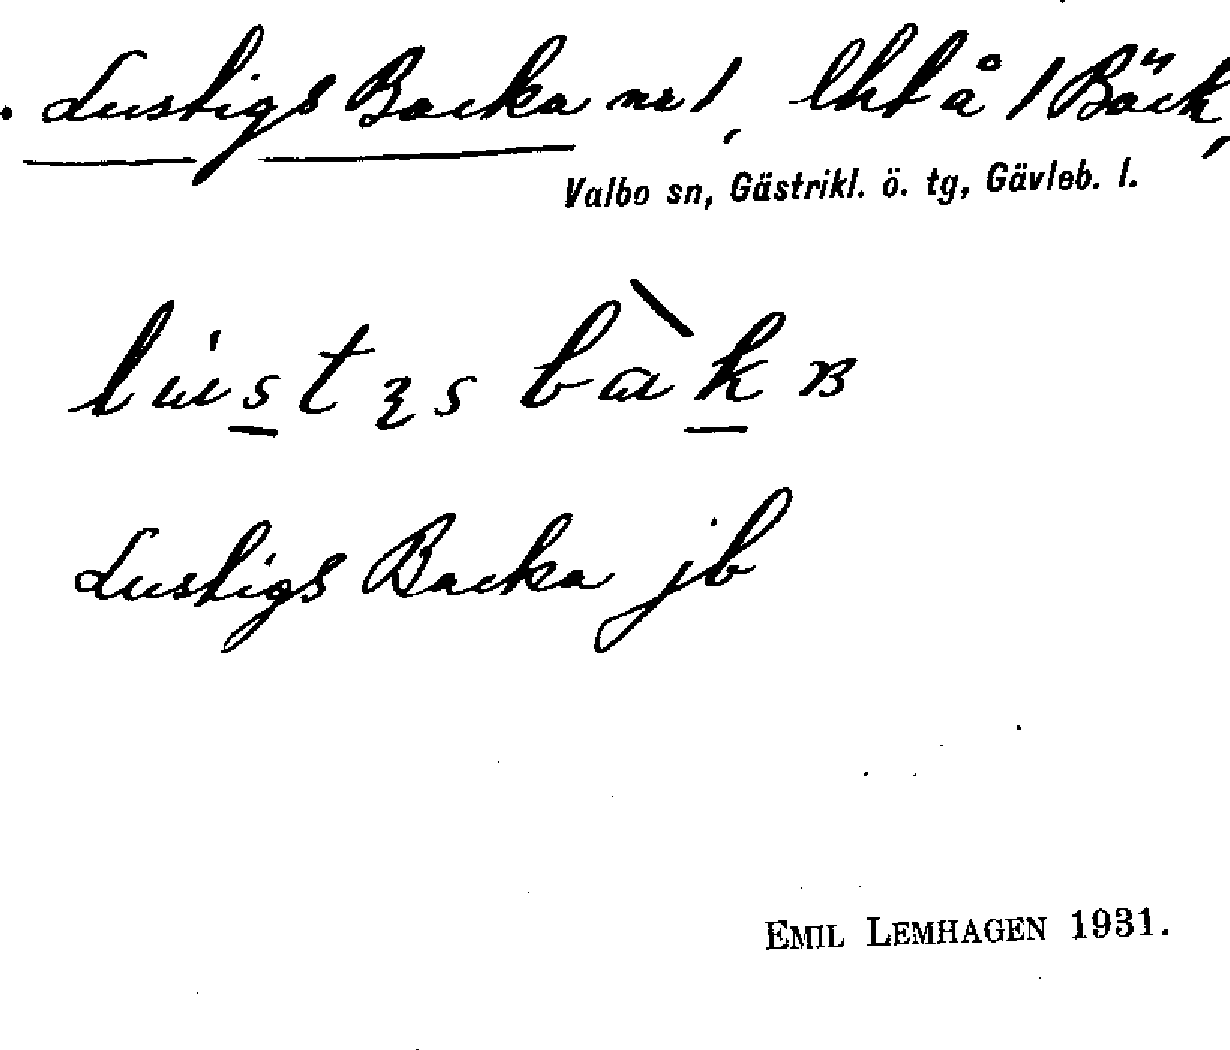 Lustigs Backa nr 1, lht å 1 Bäck,
Valbo sn, Gästrikl. ö. tg, Gävleb. l.
Lustigs Backa jb
EMIL LEMHAGEN 1931.